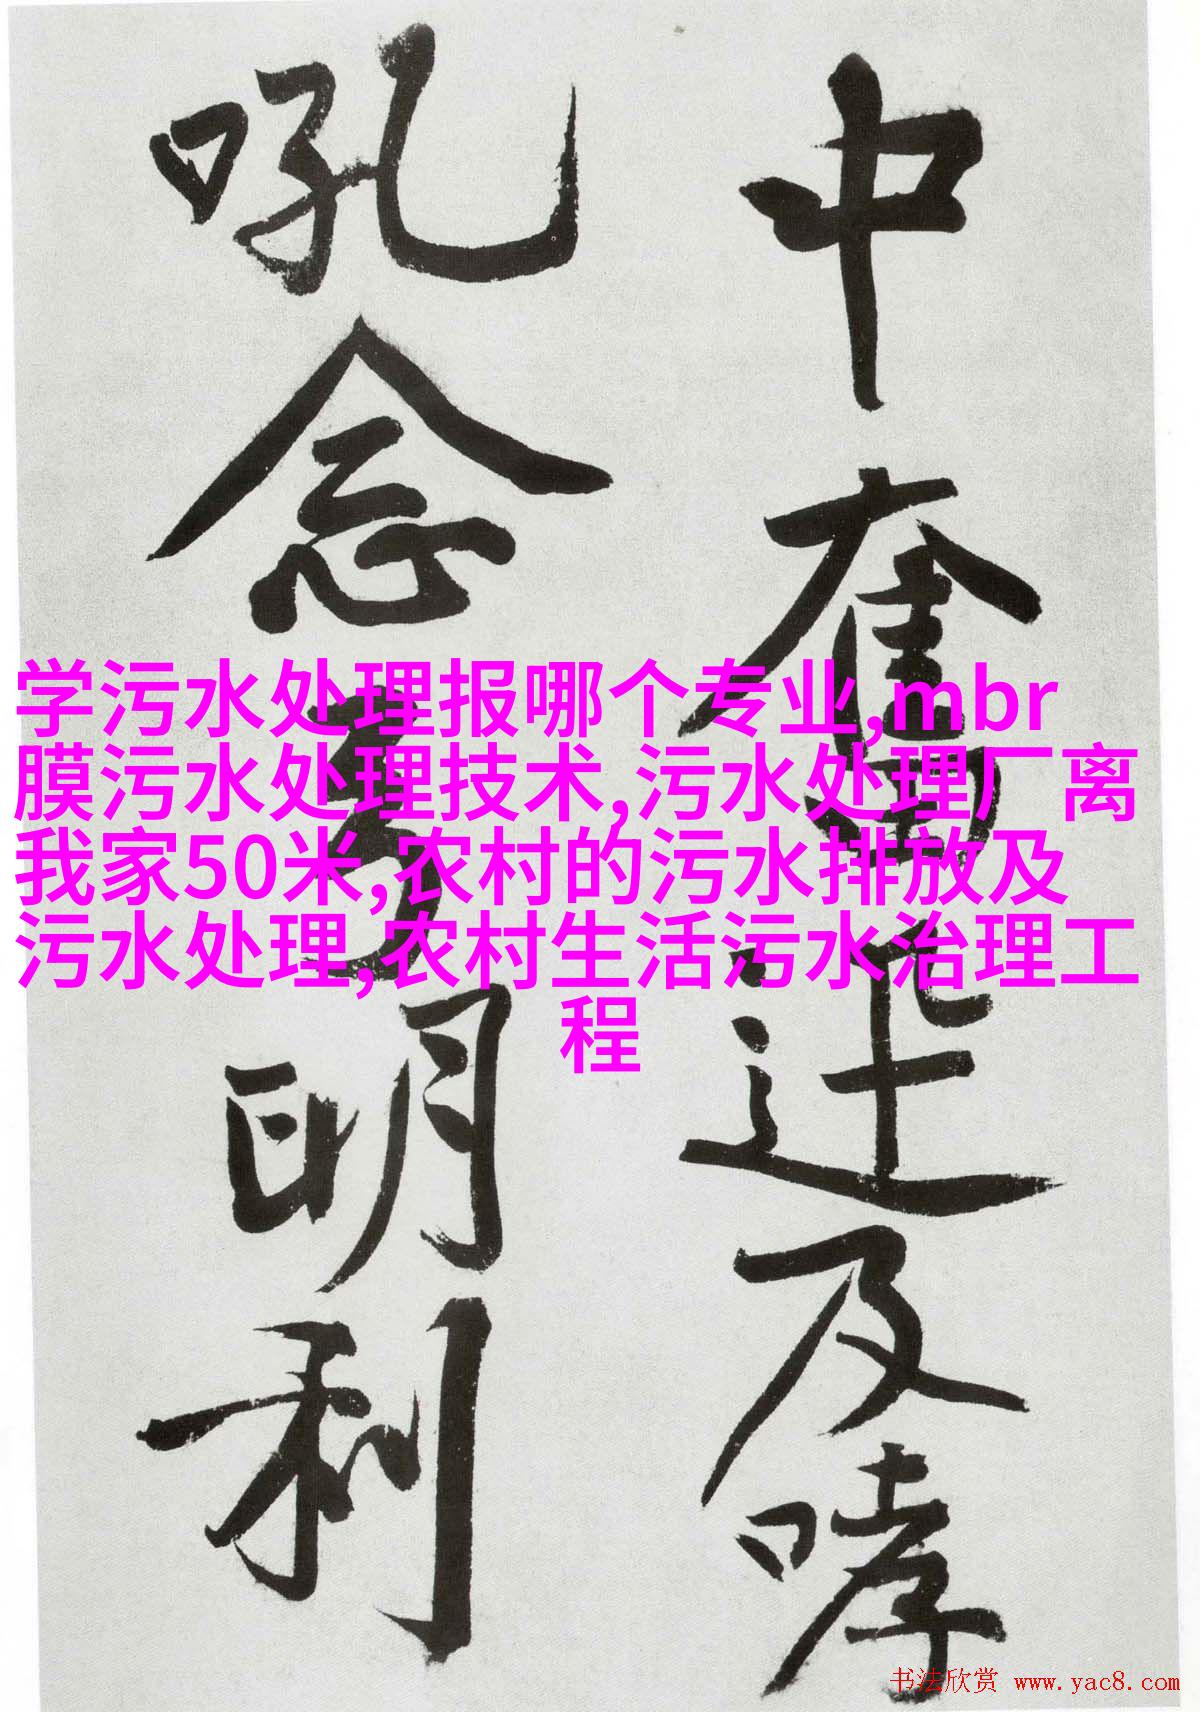 中奮迅及哮
吼念
明利
学污水处理报哪个专业,mbr
膜污水处理技术,污水处理厂离
我家50米,农村的污水排放及
污水处理,农村生活污水治理工
程
书法欣赏 www.yac8.com